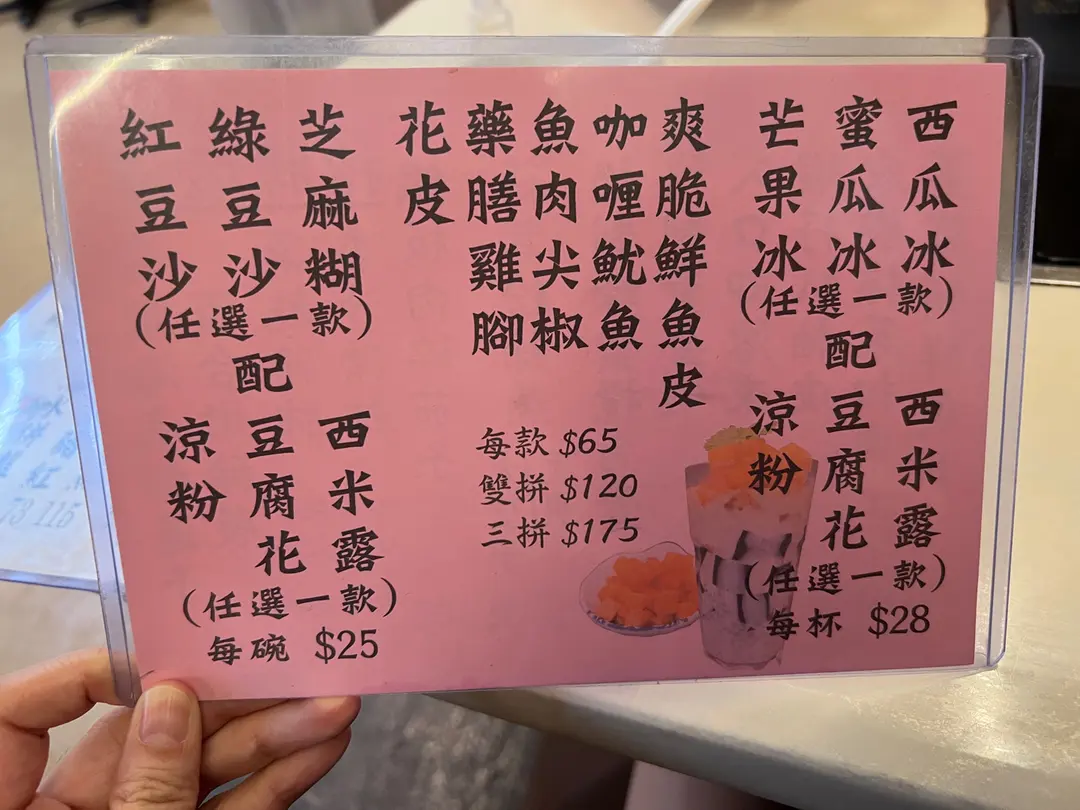 西瓜冰
蜜瓜冰
芒果冰
(任選一款)
配
西米露
豆腐花
涼粉
(任選一款)
每杯 $28
爽脆鮮魚皮
咖喱魷魚
魚肉尖椒
藥膳雞腳
花皮
每款 $65
雙拼 $120
三拼 $175
芝麻糊
綠豆沙
紅豆沙
(任選一款)
配
西米露
豆腐花
涼粉
(任選一款)
每碗 $25